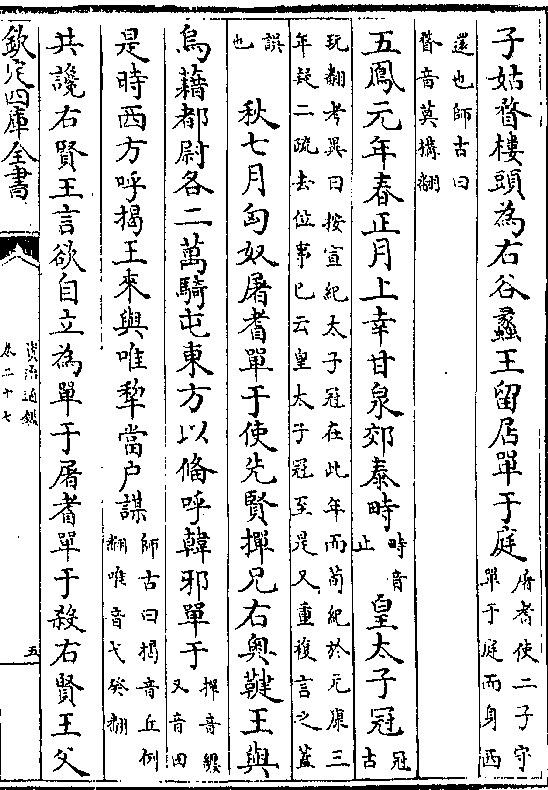 子姑瞀樓頭為右谷蠡王留居單于庭屠耆使二子守
單于庭而身西
還也師古曰
瞀音莫搆翻
五鳳元年春正月上幸甘泉郊泰畤畤音
止皇太子冠冠
古
玩翻考異曰按宣紀太子冠在此年而荀紀於元康三
年疑二疏去位事已云皇太子冠至是又重複言之蓋
誤
也秋七月匈奴屠耆單于使先賢撣兄右奥鞬王與
烏藉都尉各二萬騎屯東方以備呼韓邪單于撣音纏
又音田
是時西方呼揭王來與唯犂當户謀師古曰揭音丘例
翻唯音弋癸翻
共讒右賢王言欲自立為單于屠耆單于殺右賢王父
欽定四庫全書
資治通鑑
卷二十七
五